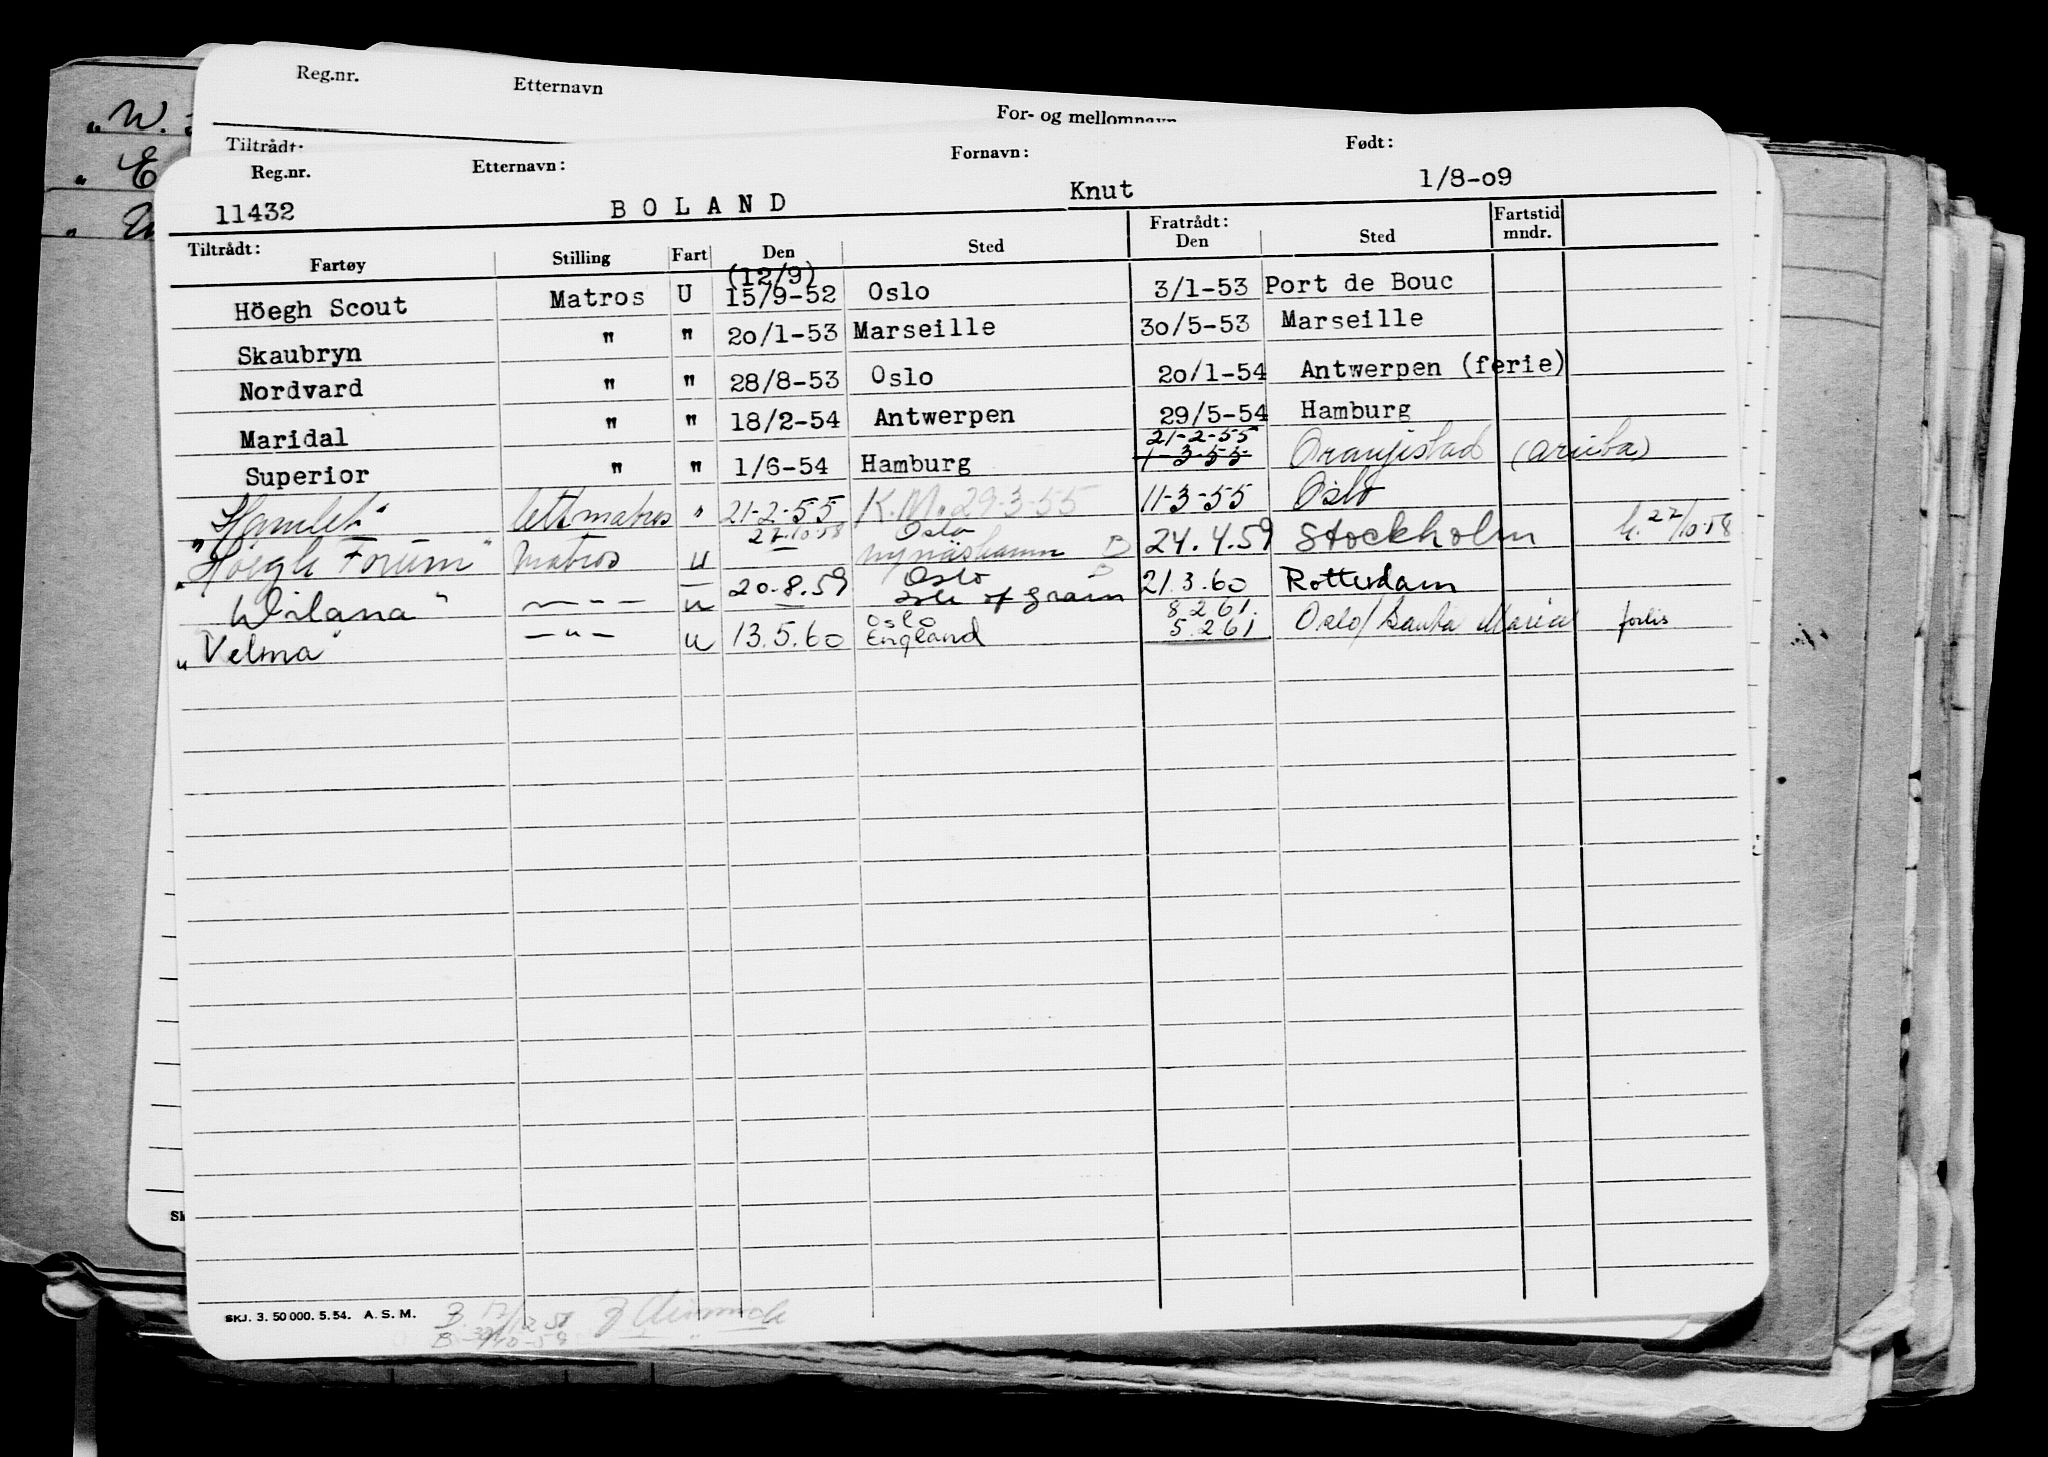 Reg.nr. Etternavn For- og mellomnavn
Tiltrådt:
"W.
" E
"
Reg.nr. Etternavn: Fornavn: Født:
11432 BOLAND Knut 1/8-09
Tiltrådt: Fratrådt: Fartstid
Fartøy Stilling Fart Den Sted Den Sted mndr.
(12/9)
Höegh Scout Matros U 15/9-52 Oslo 3/1-53 Port de Bouc
Skaubryn " " 20/1-53 Marseille 30/5-53 Marseille
Nordvard " " 28/8-53 Oslo 20/1-54 Antwerpen (ferie)
Maridal " " 18/2-54 Antwerpen 29/5-54 Hamburg
21-2-55
Superior " " 1/6-54 Hamburg 1-3-55 Oranjestad (Aruba)
"Hamlet" lettmatros " 21-2-55 K.M. 29-3-55 11-3-55 Oslo
27.10.58 Oslo
"Höegh Forum" Matros u Nynäshamn B 24.4.59 Stockholm h. 27/10-58
Oslo B
Wilana" — - - u 20.8.59 Isle of Grain 21.3.60 Rotterdam
Oslo 8.2.61.
"Velma" —"— u 13.5.60 England 5.2.61 Oslo/Santa Maria forlis
SKJ. 3. 50 000. 5. 54. A. S. M. B. 17/12 58
B.